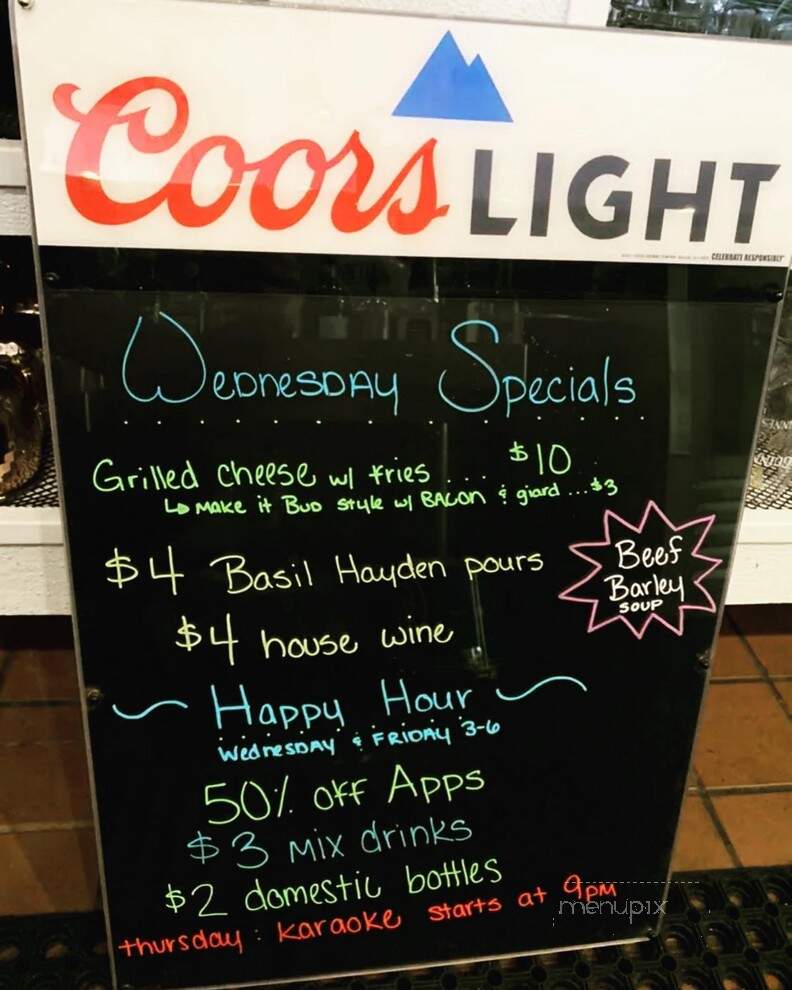 Coors LIGHT
CELEBRATE RESPONSIBLY
Wednesday Specials
Grilled cheese w/ fries ... $10
↳ Make it Bud style w/ BACON & giard ... $3
$4 Basil Hayden pours
Beef
Barley
SOUP
$4 house wine
~ Happy Hour ~
Wednesday & FRIDAY 3-6
50% off Apps
$3 Mix drinks
$2 domestic bottles
thursday : karaoke starts at 9pm
menupix